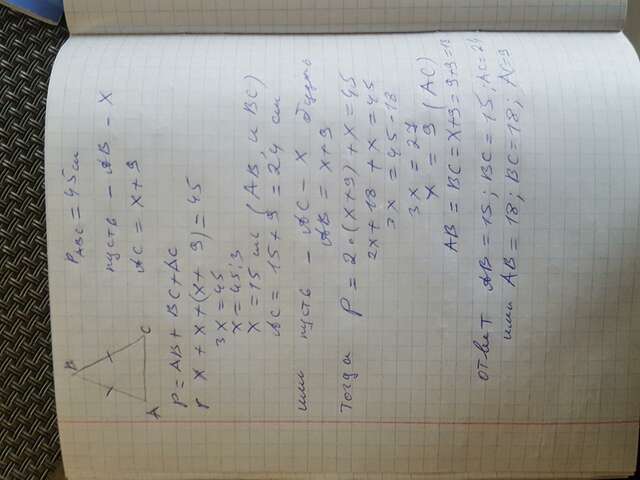 B
A
C
P ABC = 45 см
пусть - AB - X
AC = X + 9
P = AB + BC + AC
X + X + (X + 9) = 45
3X = 45
X = 45:3
X = 15 см (AB и BC)
AC = 15 + 9 = 24 см
или пусть - AC - X будет
AB = X + 9
Тогда P = 2·(X+9) + X = 45
2X + 18 + X = 45
3X = 45 - 18
3X = 27
X = 9 (AC)
AB = BC = X+9 = 9+9 = 18
ответ AB = 15; BC = 15; AC = 24
или AB = 18; BC = 18; AC = 9